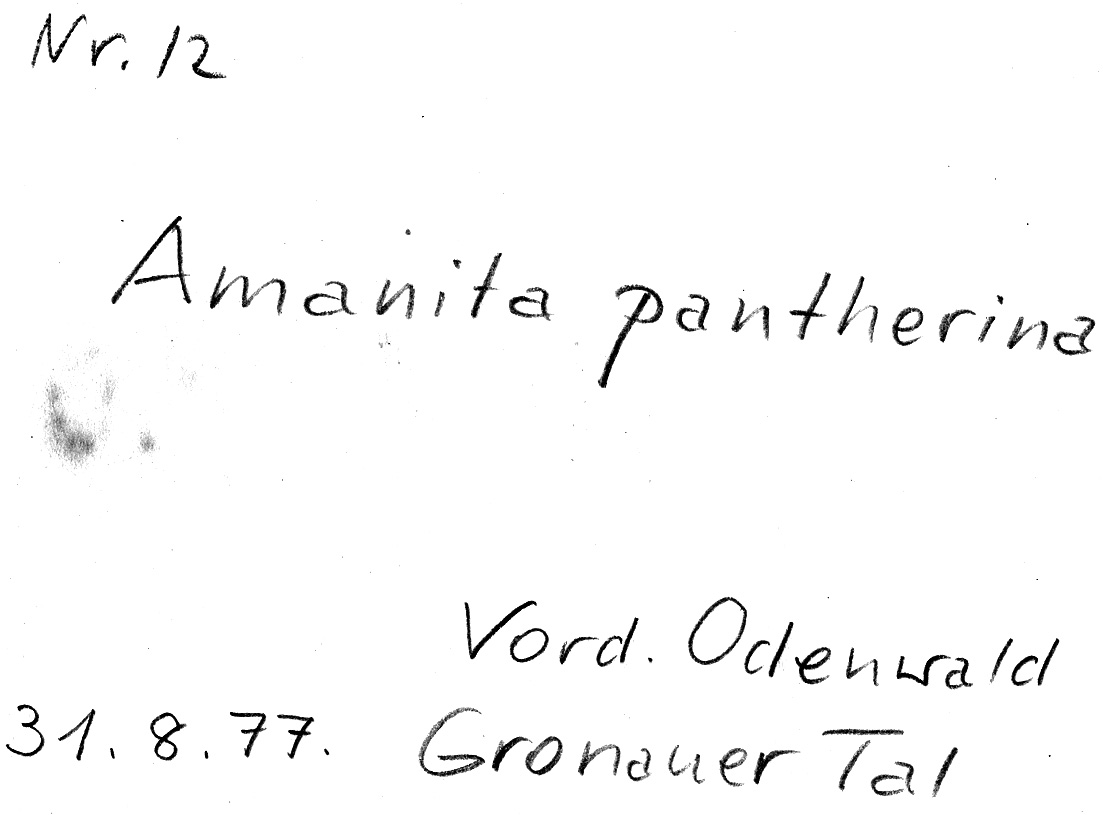 Nr. 12
Amanita pantherina
Vord. Odenwald
31.8.77. Gronauer Tal